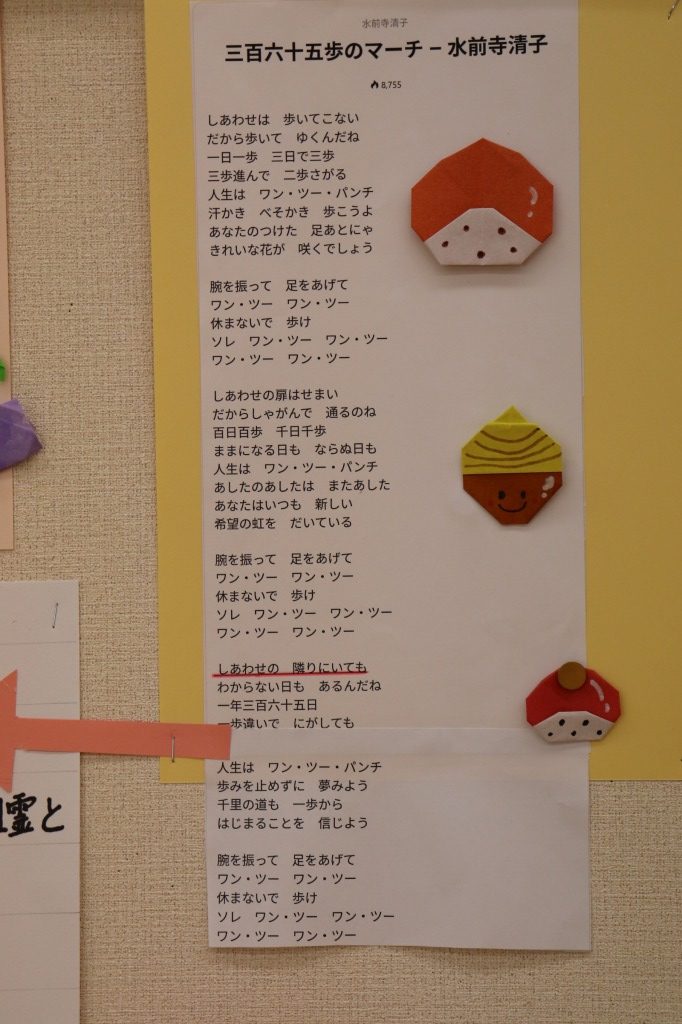 水前寺清子
三百六十五歩のマーチ – 水前寺清子
8,755
しあわせは　歩いてこない
だから歩いて　ゆくんだね
一日一歩　三日で三歩
三歩進んで　二歩さがる
人生は　ワン・ツー・パンチ
汗かき　べそかき　歩こうよ
あなたのつけた　足あとにゃ
きれいな花が　咲くでしょう
腕を振って　足をあげて
ワン・ツー　ワン・ツー
休まないで　歩け
ソレ　ワン・ツー　ワン・ツー
ワン・ツー　ワン・ツー
しあわせの扉はせまい
だからしゃがんで　通るのね
百日百歩　千日千歩
ままになる日も　ならぬ日も
人生は　ワン・ツー・パンチ
あしたのあしたは　またあした
あなたはいつも　新しい
希望の虹を　だいている
腕を振って　足をあげて
ワン・ツー　ワン・ツー
休まないで　歩け
ソレ　ワン・ツー　ワン・ツー
ワン・ツー　ワン・ツー
しあわせの　隣りにいても
わからない日も　あるんだね
一年三百六十五日
一歩違いで　にがしても
人生は　ワン・ツー・パンチ
歩みを止めずに　夢みよう
千里の道も　一歩から
はじまることを　信じよう
腕を振って　足をあげて
ワン・ツー　ワン・ツー
休まないで　歩け
ソレ　ワン・ツー　ワン・ツー
ワン・ツー　ワン・ツー
霊と